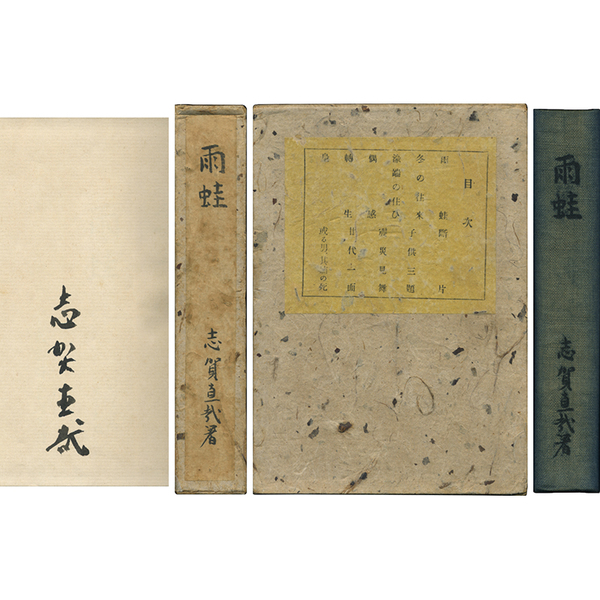 志賀直哉
雨蛙
志賀直哉著
目次
雨蛙 斷片
冬の往來 子供三題
濠端の住ひ
偶感 震災見舞
轉生 廿代一面
或る男、其姉の死
雨蛙
志賀直哉著